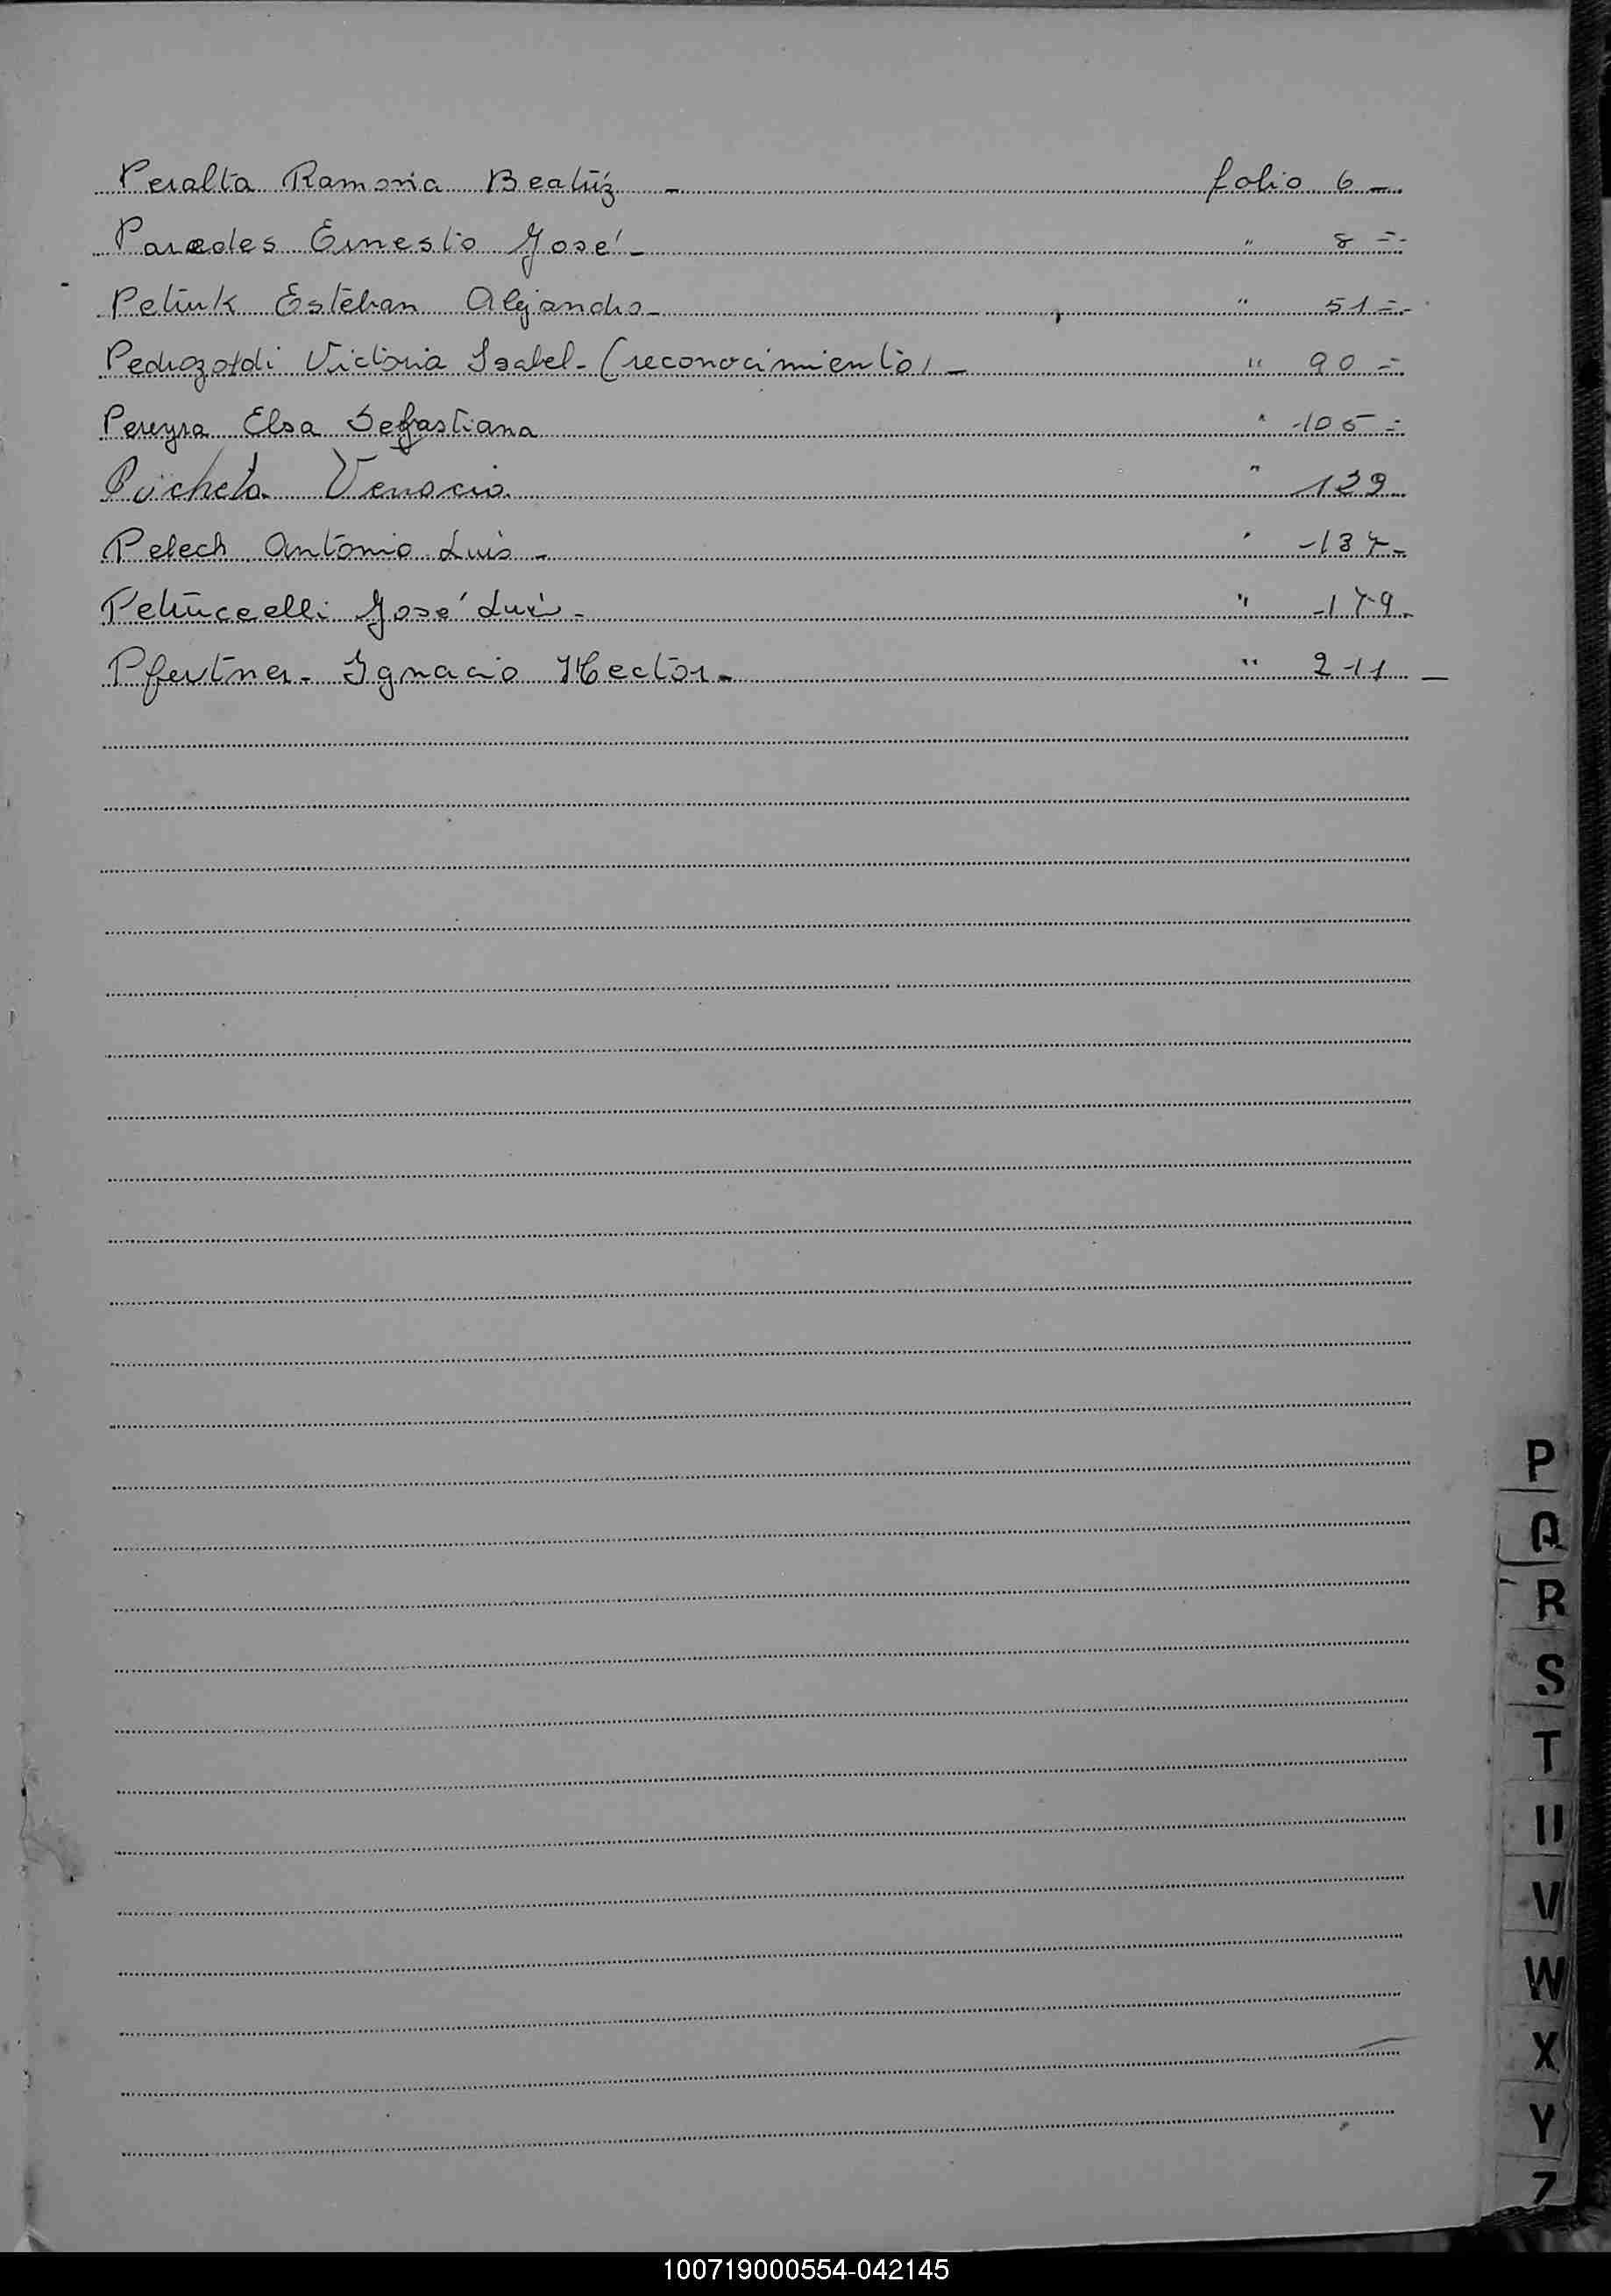 Peralta Ramona Beatriz - folio 6 -
Paredes Ernesto José - " 8 =
Petruk Esteban Alejandro - " 51 =
Pedrozoldi Victoria Isabel - (reconocimiento) - " 90 =
Pereyra Elsa Sebastiana " 105 =
Venacia " 129
Pelech Antonio Luis - " 137 -
Petruccelli José Luis - " 179 -
Pfertner - Ignacio Hector - " 211 -
P
Q
R
S
T
U
V
W
X
Y
Z
100719000554-042145